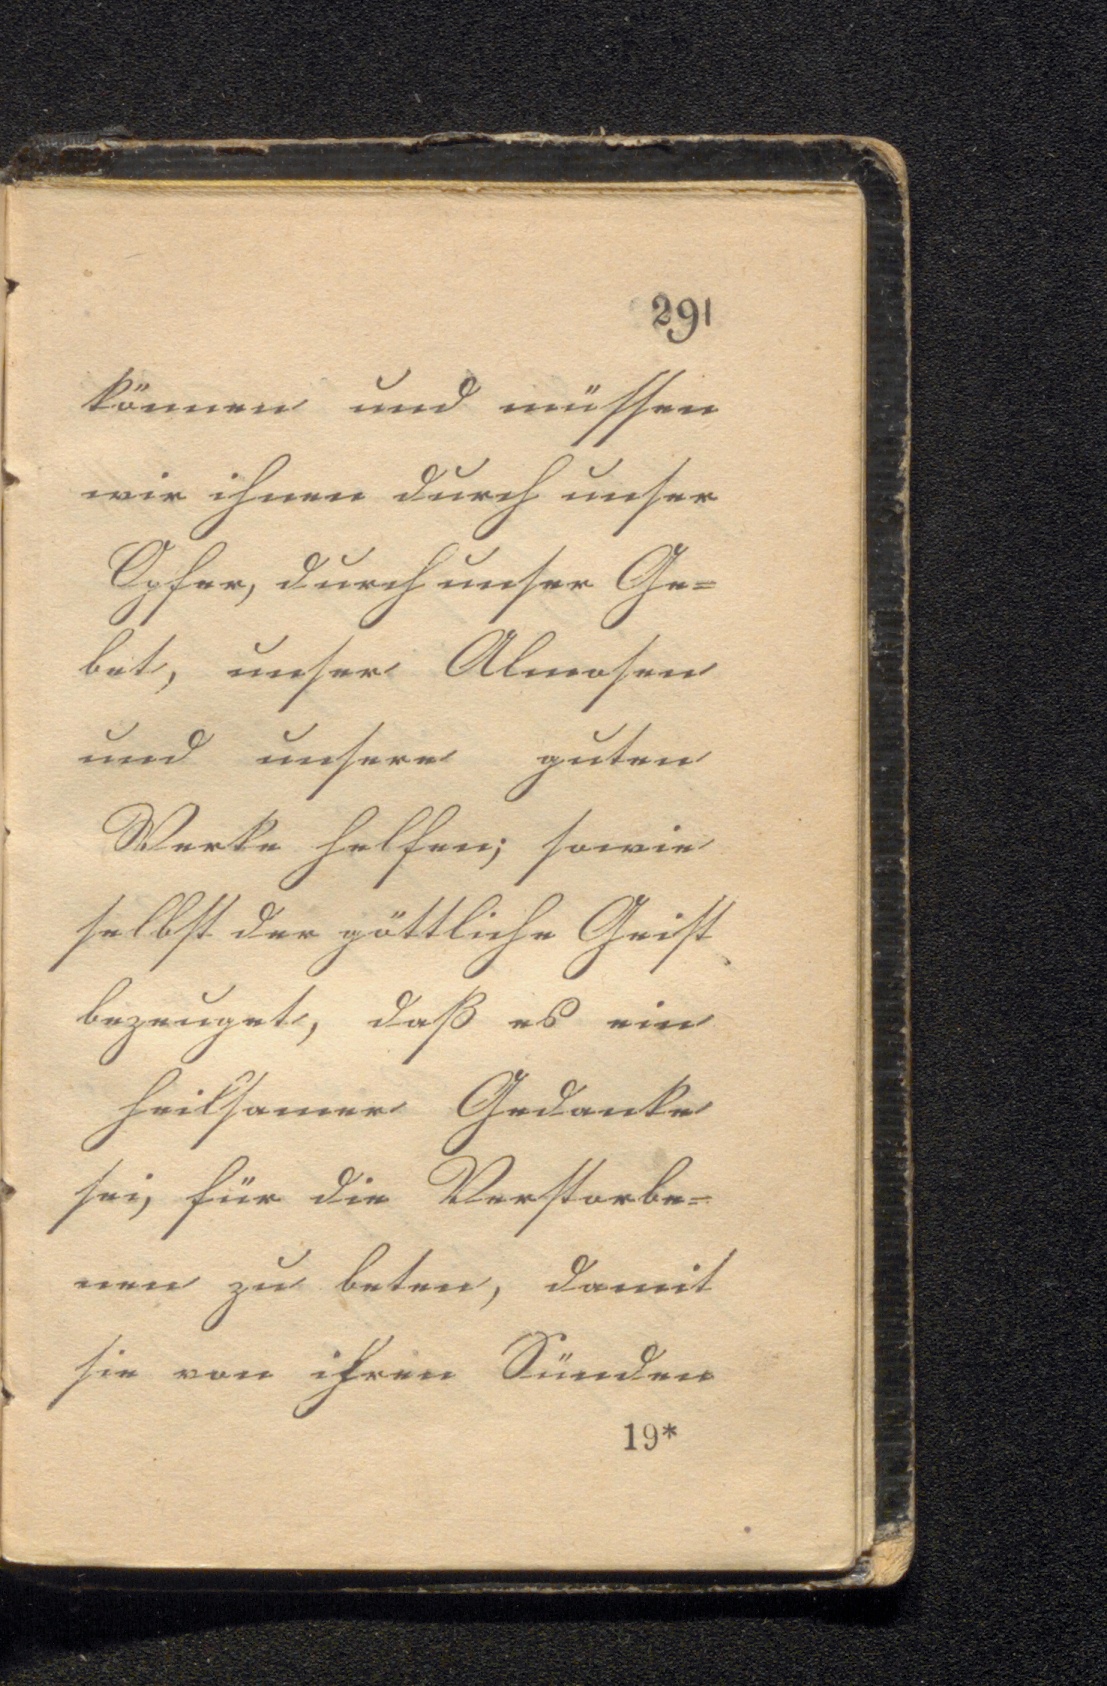 291
können und müssen
wir ihnen durch unser
Opfer, durch unser Ge=
bet, unser Almosen
und unsere guten
Werke helfen; sowie
selbst der göttliche Geist
bezeuget, daß es ein
heilsamer Gedanke
sei, für die Verstorbe=
nen zu beten, damit
sie von ihren Sünden
19*